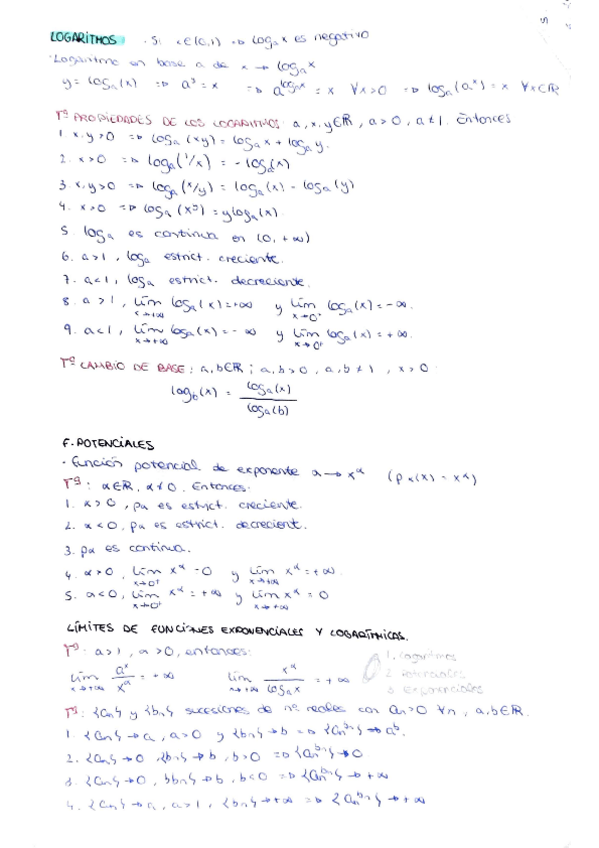 5
LOGARÍTMOS · Si x∈(0,1) => log_a x es negativo
· Logaritmo en base a de x → log_a x
y = log_a(x) => a^y = x => a^(log_a x) = x ∀x>0 => log_a(a^x) = x ∀x∈ℝ
Tª PROPIEDADES DE LOS LOGARITMOS: a, x, y∈ℝ, a>0, a≠1. Entonces
1. x,y>0 => log_a(xy) = log_a x + log_a y.
2. x>0 => log_a(1/x) = -log_a(x)
3. x,y>0 => log_a(x/y) = log_a(x) - log_a(y)
4. x>0 => log_a(x^y) = y log_a(x).
5. log_a es continua en (0,+∞)
6. a>1, log_a estrict. creciente.
7. a<1, log_a estrict. decreciente.
8. a>1, lím x→+∞ log_a(x) = +∞ y lím x→0⁺ log_a(x) = -∞.
9. a<1, lím x→+∞ log_a(x) = -∞ y lím x→0⁺ log_a(x) = +∞.
Tª CAMBIO DE BASE: a,b∈ℝ; a,b>0, a,b≠1, x>0
log_b(x) = log_a(x) / log_a(b)
F. POTENCIALES
· Función potencial de exponente α → x^α (p_α(x) = x^α)
Tª: α∈ℝ, α≠0. Entonces:
1. α>0, pα es estrict. creciente.
2. α<0, pα es estrict. decrecient.
3. pα es continua.
4. α>0, lím x→0⁺ x^α = 0 y lím x→+∞ x^α = +∞.
5. α<0, lím x→0⁺ x^α = +∞ y lím x→+∞ x^α = 0
LÍMITES DE FUNCIONES EXPONENCIALES Y LOGARÍTMICAS.
Tª: a>1, α>0, entonces:
lím x→+∞ a^x / x^α = +∞ lím x→+∞ x^α / log_a x = +∞
1. Logaritmos
2. Potenciales
3. Exponenciales
Tª: {an} y {bn} sucesiones de nº reales con an>0 ∀n, a,b∈ℝ.
1. {an} → a, a>0 y {bn} → b => {an^bn} → a^b.
2. {an} → 0, {bn} → b, b>0 => {an^bn} → 0.
3. {an} → 0, {bn} → b, b<0 => {an^bn} → +∞
4. {an} → a, a>1, {bn} → +∞ => {an^bn} → +∞